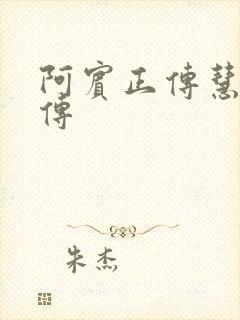 阿賓正傳慧
傳
朱杰